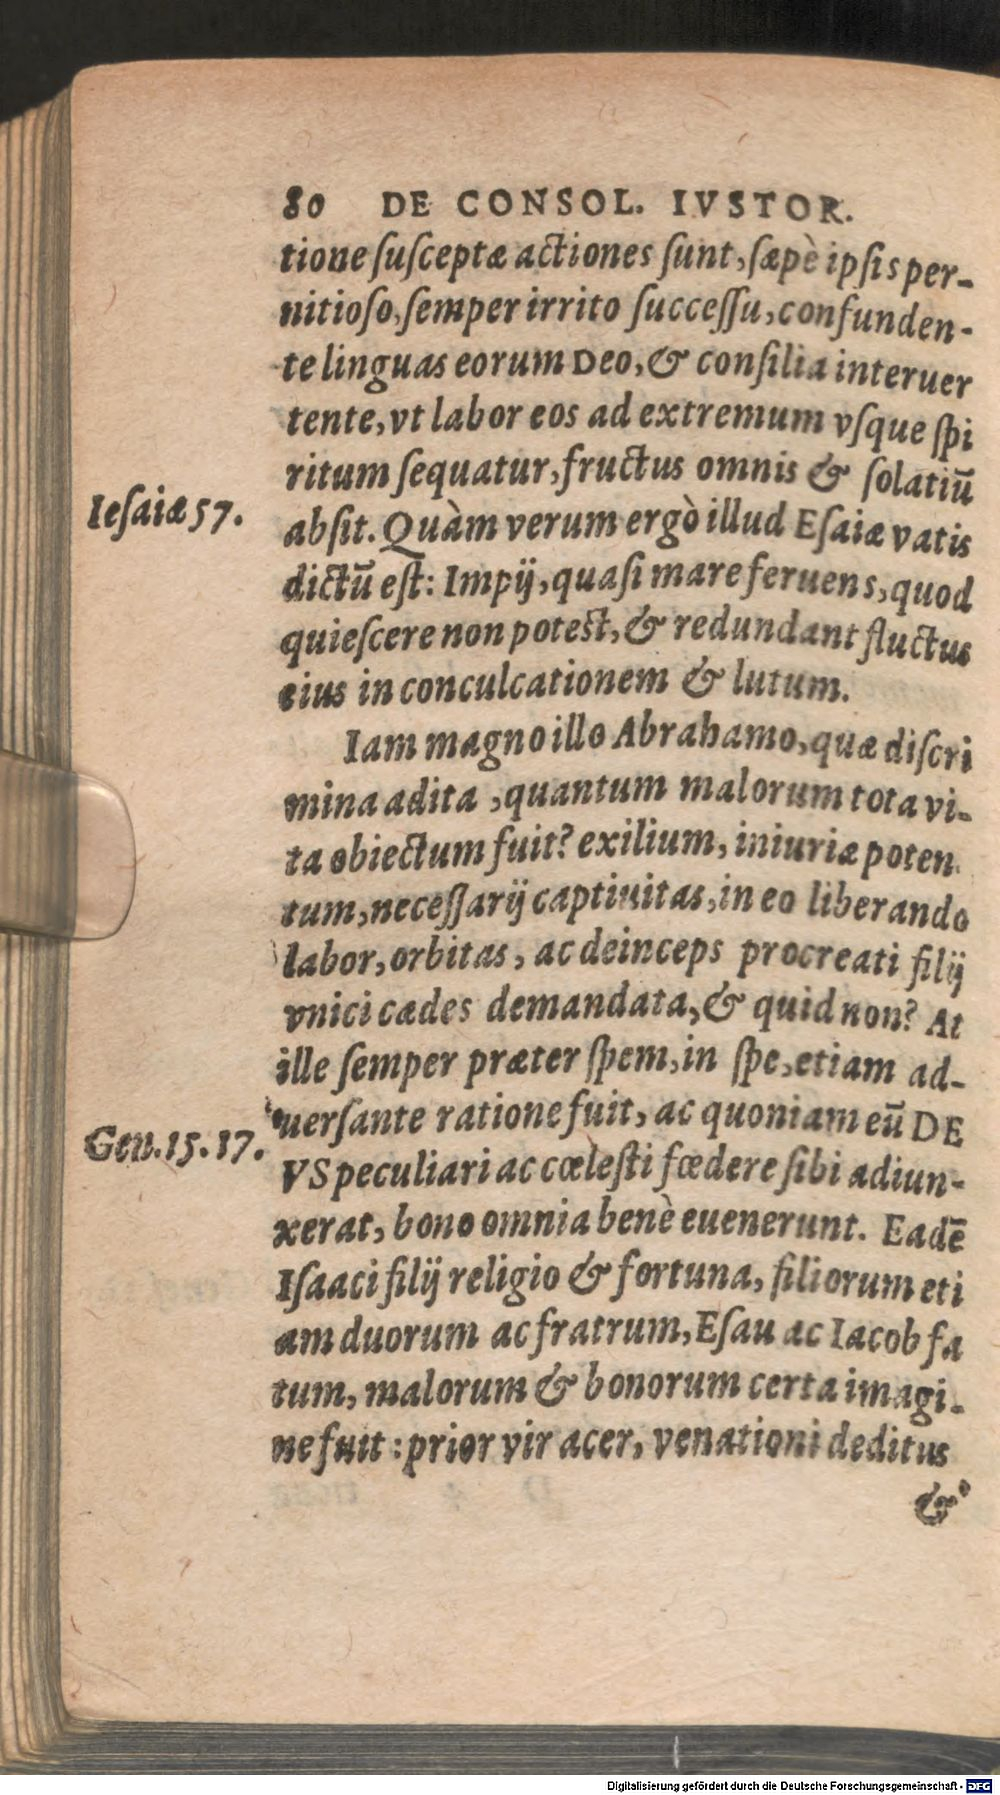 80 DE CONSOL. IVSTOR.
tione ſuſceptæ actiones ſunt, ſæpè ipſis per-
nitioſo, ſemper irrito ſucceſſu, confunden-
te linguas eorum DEO, & conſilia interuer
tente, vt labor eos ad extremum vſque ſpi
ritum ſequatur, fructus omnis & ſolatiū
Ieſaiæ 57.
abſit. Quàm verum ergò illud Eſaiæ vatis
dictū eſt: Impij, quaſi mare feruens, quod
quieſcere non poteſt, & redundant fluctus
eius in conculcationem & lutum.
Iam magno illo Abrahamo, quæ diſcri
mina adita, quantum malorum tota vi-
ta obiectum fuit? exilium, iniuriæ poten
tum, neceſſarij captiuitas, in eo liberando
labor, orbitas, ac deinceps procreati filij
vnici cædes demandata, & quid non? At
ille ſemper præter ſpem, in ſpe, etiam ad-
uerſante ratione fuit, ac quoniam eū DE
Gen. 15. 17.
VS peculiari ac cœleſti fœdere ſibi adiun-
xerat, bono omnia benè euenerunt. Eadē
Iſaaci filij religio & fortuna, filiorum eti
am duorum ac fratrum, Eſau ac Iacob fa
tum, malorum & bonorum certa imagi-
ne fuit: prior vir acer, venationi deditus
&
Digitalisierung gefördert durch die Deutsche Forschungsgemeinschaft - DFG